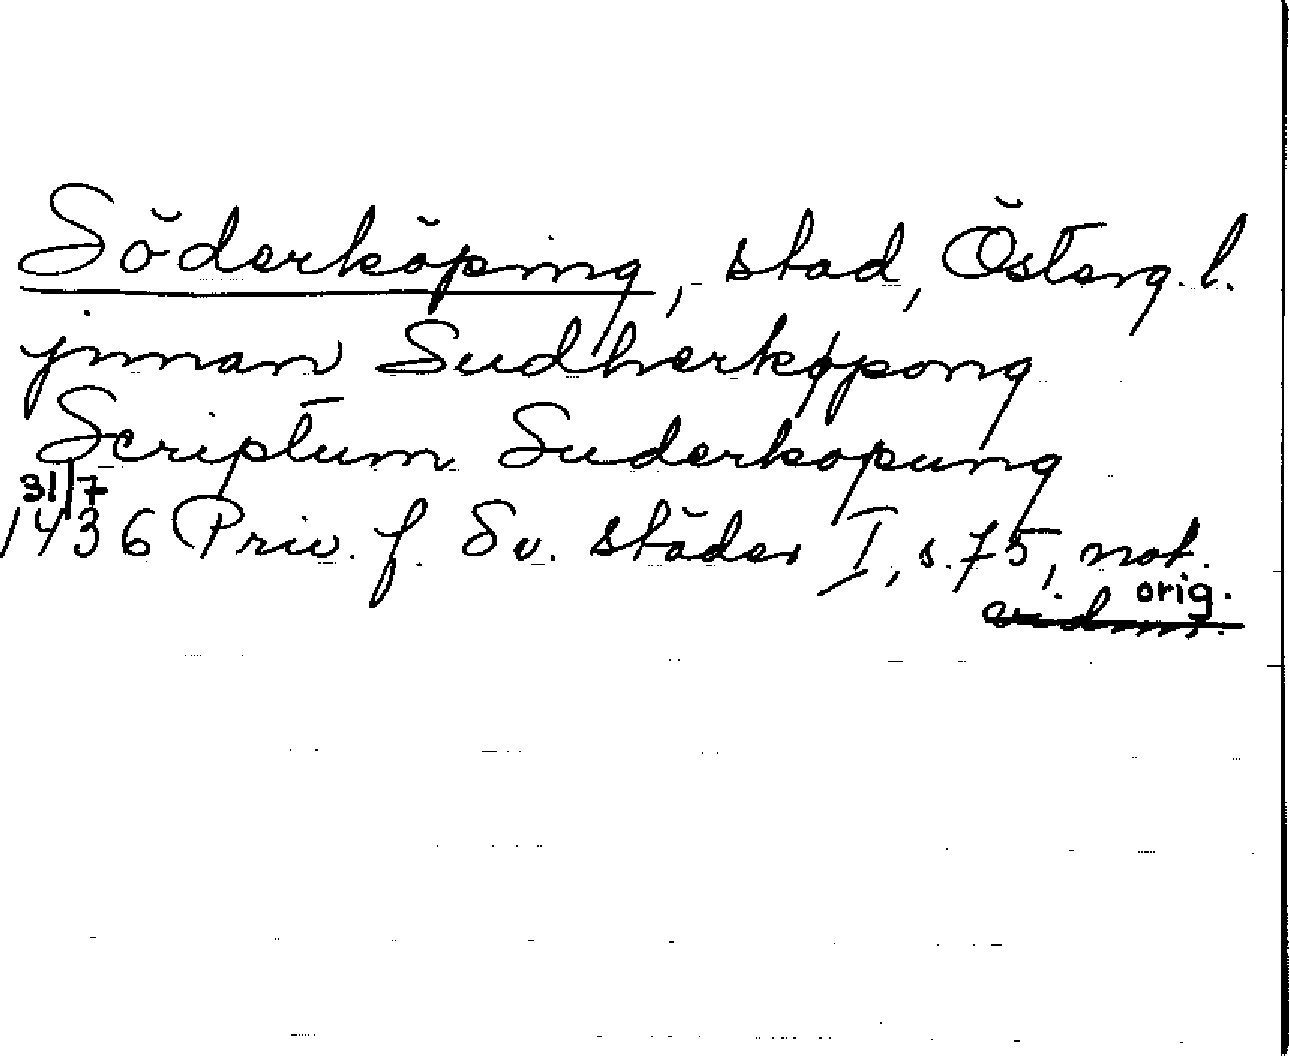 Söderköping, stad, Österg.l.
jnnan Sudherkøpong
Scriptum Suderkopung
31/7
1436 Priv. f Sv. städer I, s. 75, not.
orig.